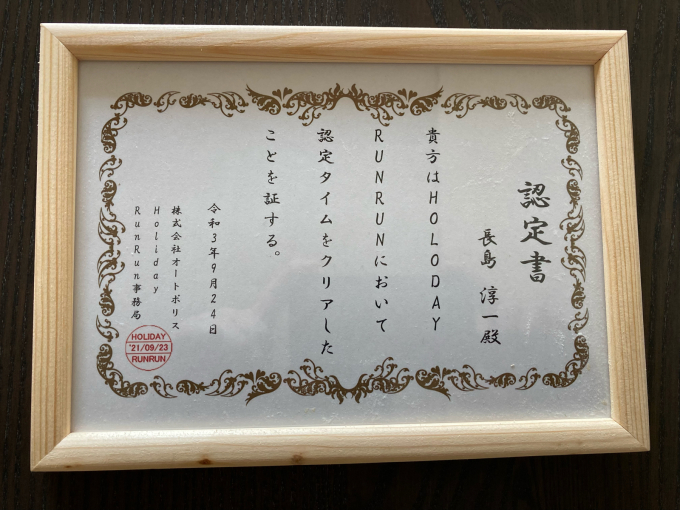 認定書
長島 淳一殿
貴方はHOLODAY
RUNRUNにおいて
認定タイムをクリアした
ことを証する。
令和3年9月24日
株式会社オートポリス
Holiday
RunRun事務局
HOLIDAY
'21/09/23
RUNRUN